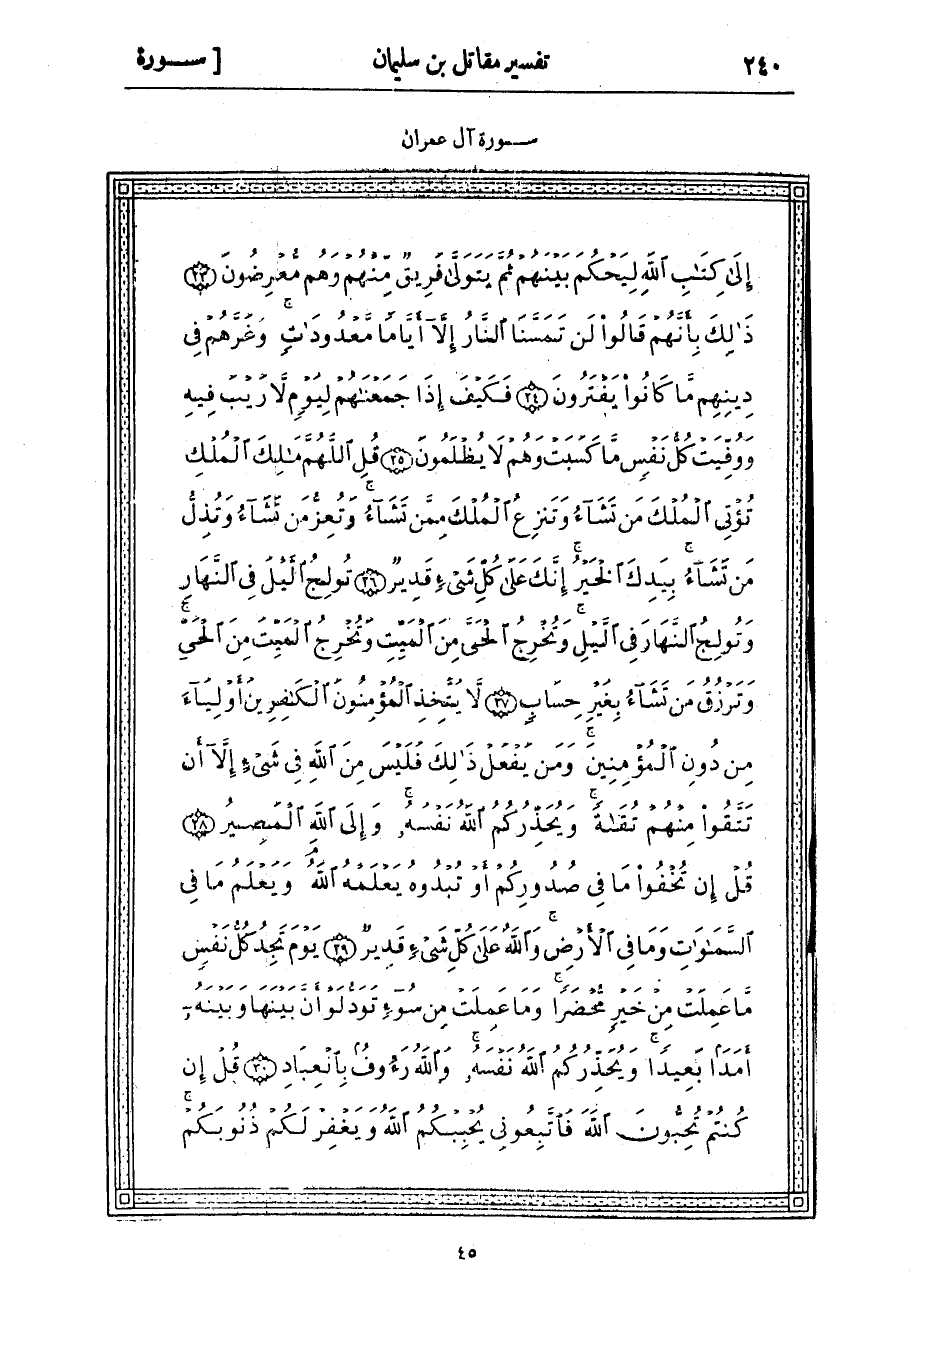 ٢٤٠ تفسير مقاتل بن سليمان [ سـورة
سـورة آل عمران
إِلَىٰ كِتَـٰبِ ٱللَّهِ لِيَحْكُمَ بَيْنَهُمْ ثُمَّ يَتَوَلَّىٰ فَرِيقٌ مِّنْهُمْ وَهُم مُّعْرِضُونَ ﴿٢٣﴾
ذَٰلِكَ بِأَنَّهُمْ قَالُوا۟ لَن تَمَسَّنَا ٱلنَّارُ إِلَّآ أَيَّامًا مَّعْدُودَٰتٍ ۖ وَغَرَّهُمْ فِى
دِينِهِم مَّا كَانُوا۟ يَفْتَرُونَ ﴿٢٤﴾ فَكَيْفَ إِذَا جَمَعْنَـٰهُمْ لِيَوْمٍ لَّا رَيْبَ فِيهِ
وَوُفِّيَتْ كُلُّ نَفْسٍ مَّا كَسَبَتْ وَهُمْ لَا يُظْلَمُونَ ﴿٢٥﴾ قُلِ ٱللَّهُمَّ مَـٰلِكَ ٱلْمُلْكِ
تُؤْتِى ٱلْمُلْكَ مَن تَشَآءُ وَتَنزِعُ ٱلْمُلْكَ مِمَّن تَشَآءُ ۚ وَتُعِزُّ مَن تَشَآءُ وَتُذِلُّ
مَن تَشَآءُ ۚ بِيَدِكَ ٱلْخَيْرُ ۚ إِنَّكَ عَلَىٰ كُلِّ شَىْءٍ قَدِيرٌ ﴿٢٦﴾ تُولِجُ ٱلَّيْلَ فِى ٱلنَّهَارِ
وَتُولِجُ ٱلنَّهَارَ فِى ٱلَّيْلِ ۚ وَتُخْرِجُ ٱلْحَىَّ مِنَ ٱلْمَيِّتِ وَتُخْرِجُ ٱلْمَيِّتَ مِنَ ٱلْحَىِّ ۚ
وَتَرْزُقُ مَن تَشَآءُ بِغَيْرِ حِسَابٍ ﴿٢٧﴾ لَّا يَتَّخِذِ ٱلْمُؤْمِنُونَ ٱلْكَـٰفِرِينَ أَوْلِيَآءَ
مِن دُونِ ٱلْمُؤْمِنِينَ ۚ وَمَن يَفْعَلْ ذَٰلِكَ فَلَيْسَ مِنَ ٱللَّهِ فِى شَىْءٍ إِلَّآ أَن
تَتَّقُوا۟ مِنْهُمْ تُقَىٰةً ۚ وَيُحَذِّرُكُمُ ٱللَّهُ نَفْسَهُۥ ۚ وَإِلَى ٱللَّهِ ٱلْمَصِيرُ ﴿٢٨﴾
قُلْ إِن تُخْفُوا۟ مَا فِى صُدُورِكُمْ أَوْ تُبْدُوهُ يَعْلَمْهُ ٱللَّهُ ۗ وَيَعْلَمُ مَا فِى
ٱلسَّمَـٰوَٰتِ وَمَا فِى ٱلْأَرْضِ ۗ وَٱللَّهُ عَلَىٰ كُلِّ شَىْءٍ قَدِيرٌ ﴿٢٩﴾ يَوْمَ تَجِدُ كُلُّ نَفْسٍ
مَّا عَمِلَتْ مِنْ خَيْرٍ مُّحْضَرًا ۚ وَمَا عَمِلَتْ مِن سُوٓءٍ تَوَدُّ لَوْ أَنَّ بَيْنَهَا وَبَيْنَهُۥٓ
أَمَدًۢا بَعِيدًا ۗ وَيُحَذِّرُكُمُ ٱللَّهُ نَفْسَهُۥ ۗ وَٱللَّهُ رَءُوفٌۢ بِٱلْعِبَادِ ﴿٣٠﴾ قُلْ إِن
كُنتُمْ تُحِبُّونَ ٱللَّهَ فَٱتَّبِعُونِى يُحْبِبْكُمُ ٱللَّهُ وَيَغْفِرْ لَكُمْ ذُنُوبَكُمْ ۗ
٤٥